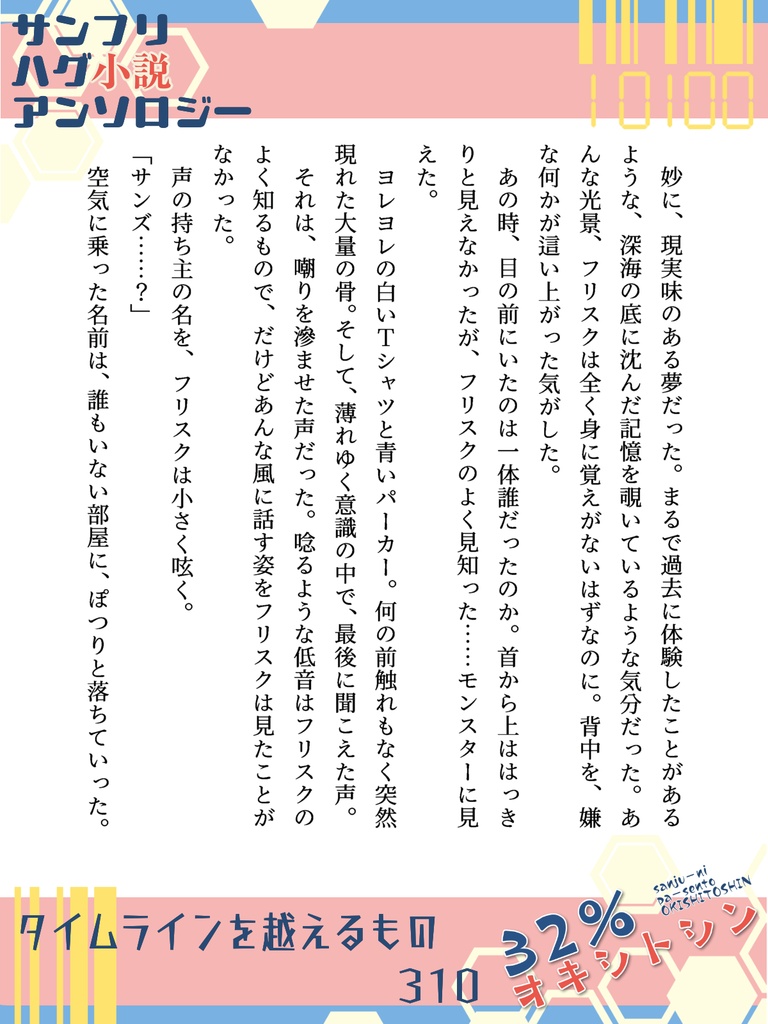 サンフリ
ハグ小説
アンソロジー
10100
　妙に、現実味のある夢だった。まるで過去に体験したことがある
ような、深海の底に沈んだ記憶を覗いているような気分だった。あ
んな光景、フリスクは全く身に覚えがないはずなのに。背中を、嫌
な何かが這い上がった気がした。
　あの時、目の前にいたのは一体誰だったのか。首から上ははっき
りと見えなかったが、フリスクのよく見知った……モンスターに見
えた。
　ヨレヨレの白いTシャツと青いパーカー。何の前触れもなく突然
現れた大量の骨。そして、薄れゆく意識の中で、最後に聞こえた声。
　それは、嘲りを滲ませた声だった。唸るような低音はフリスクの
よく知るもので、だけどあんな風に話す姿をフリスクは見たことが
なかった。
　声の持ち主の名を、フリスクは小さく呟く。
「サンズ……？」
　空気に乗った名前は、誰もいない部屋に、ぽつりと落ちていった。
タイムラインを越えるもの
310
sanju-ni
pa-sento
OKISHITOSHIN
32%
オキシトシン